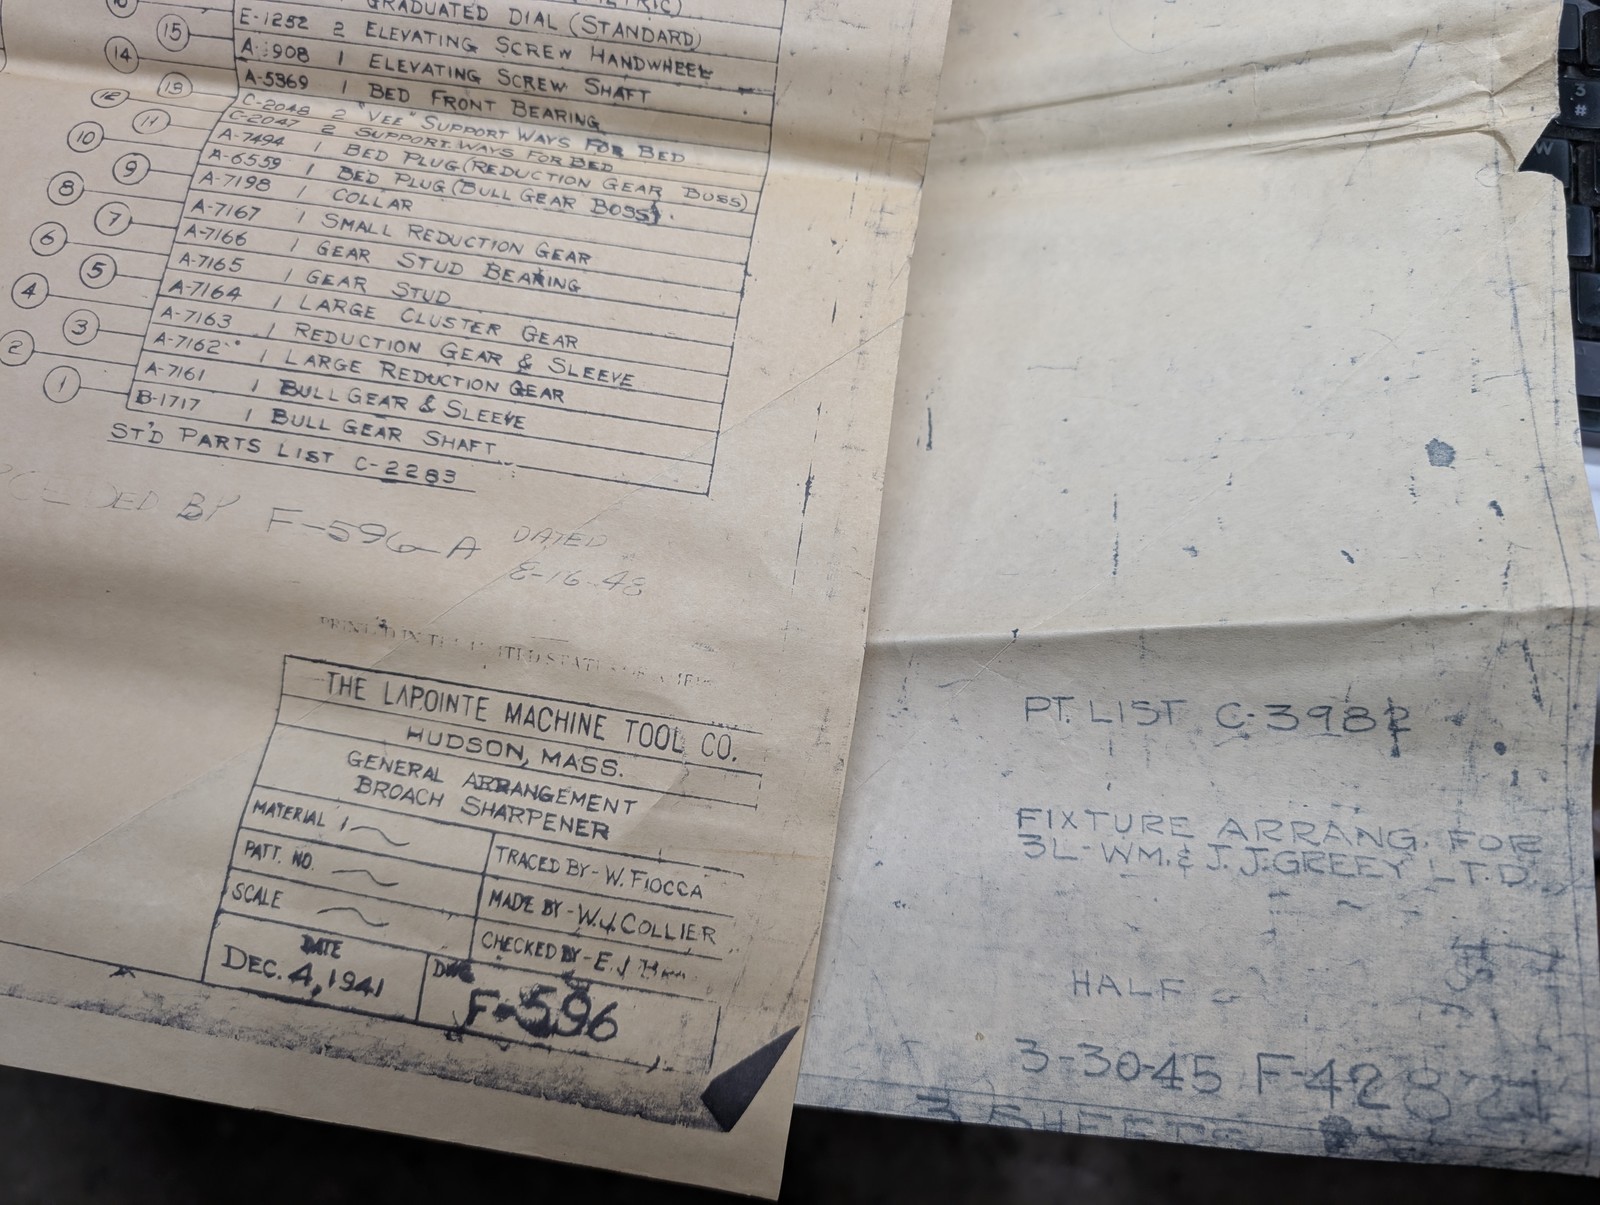 GRADUATED DIAL (STANDARD)
15 E-1252 2 ELEVATING SCREW HANDWHEEL
14 A- 908 1 ELEVATING SCREW SHAFT
13 A-5369 1 BED FRONT BEARING
12 C-2048 2 "VEE" SUPPORT WAYS FOR BED
11 C-2047 2 SUPPORT WAYS FOR BED
10 A-7494 1 BED PLUG (REDUCTION GEAR BOSS)
9 A-6559 1 BED PLUG (BULL GEAR BOSS).
8 A-7198 1 COLLAR
7 A-7167 1 SMALL REDUCTION GEAR
6 A-7166 1 GEAR STUD BEARING
5 A-7165 1 GEAR STUD
4 A-7164 1 LARGE CLUSTER GEAR
3 A-7163 1 REDUCTION GEAR & SLEEVE
A-7162 1 LARGE REDUCTION GEAR
2 A-7161 1 BULL GEAR & SLEEVE
1 B-1717 1 BULL GEAR SHAFT
ST'D PARTS LIST C-2283
BY F-596-A DATED
8-16-48
PRINTED IN THE UNITED STATES OF
THE LAPOINTE MACHINE TOOL CO.
HUDSON, MASS.
GENERAL ARRANGEMENT
BROACH SHARPENER
MATERIAL
PATT. NO.
SCALE
TRACED BY - W. FIOCCA
MADE BY - W.J. COLLIER
CHECKED BY - E. J
DATE
DEC. 4, 1941
DWG
F-596
PT. LIST C-3982
FIXTURE ARRANG. FOR
3L-WM. & J. J. GREEY LT.D.
HALF
3-30-45 F-42
3 SHEETS
3
#
W